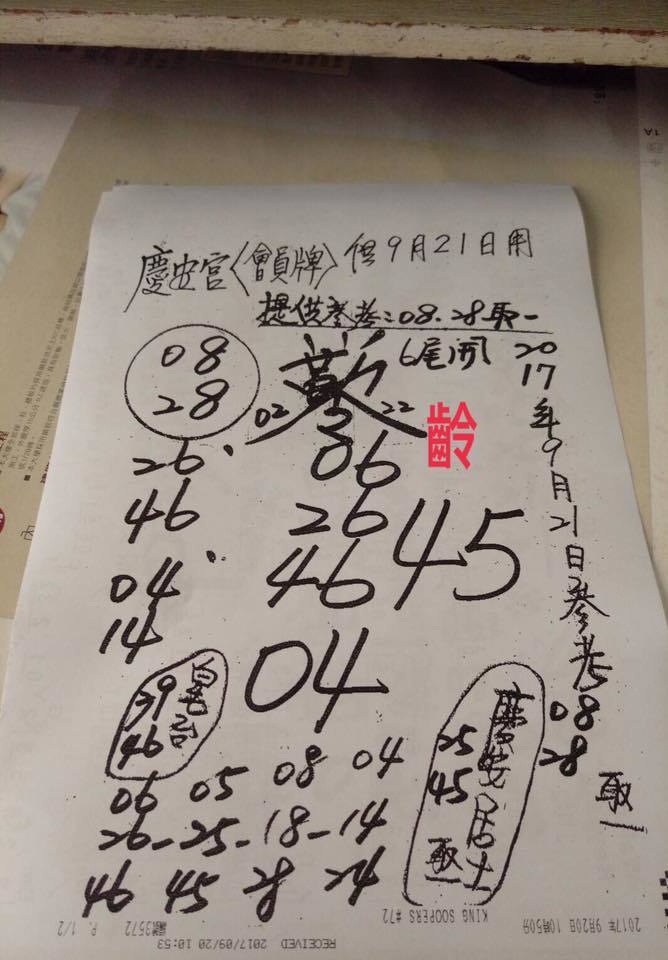 慶安宮〈會員牌〉供9月21日用
提供參考:08.28取一
08
28
6尾開
02 22
齡
06
26
46
45
04
26
46
04
14
39
46
2017年9月21日參考
08
28
取一
慶安居士
25
45
取一
06 05 08 04
26-25-18-14
46 45 28 24
2017年 9月20日 10時50分
KING SOOPERS #72
3572
P. 1/2
RECEIVED 2017/09/20 10:53
1A